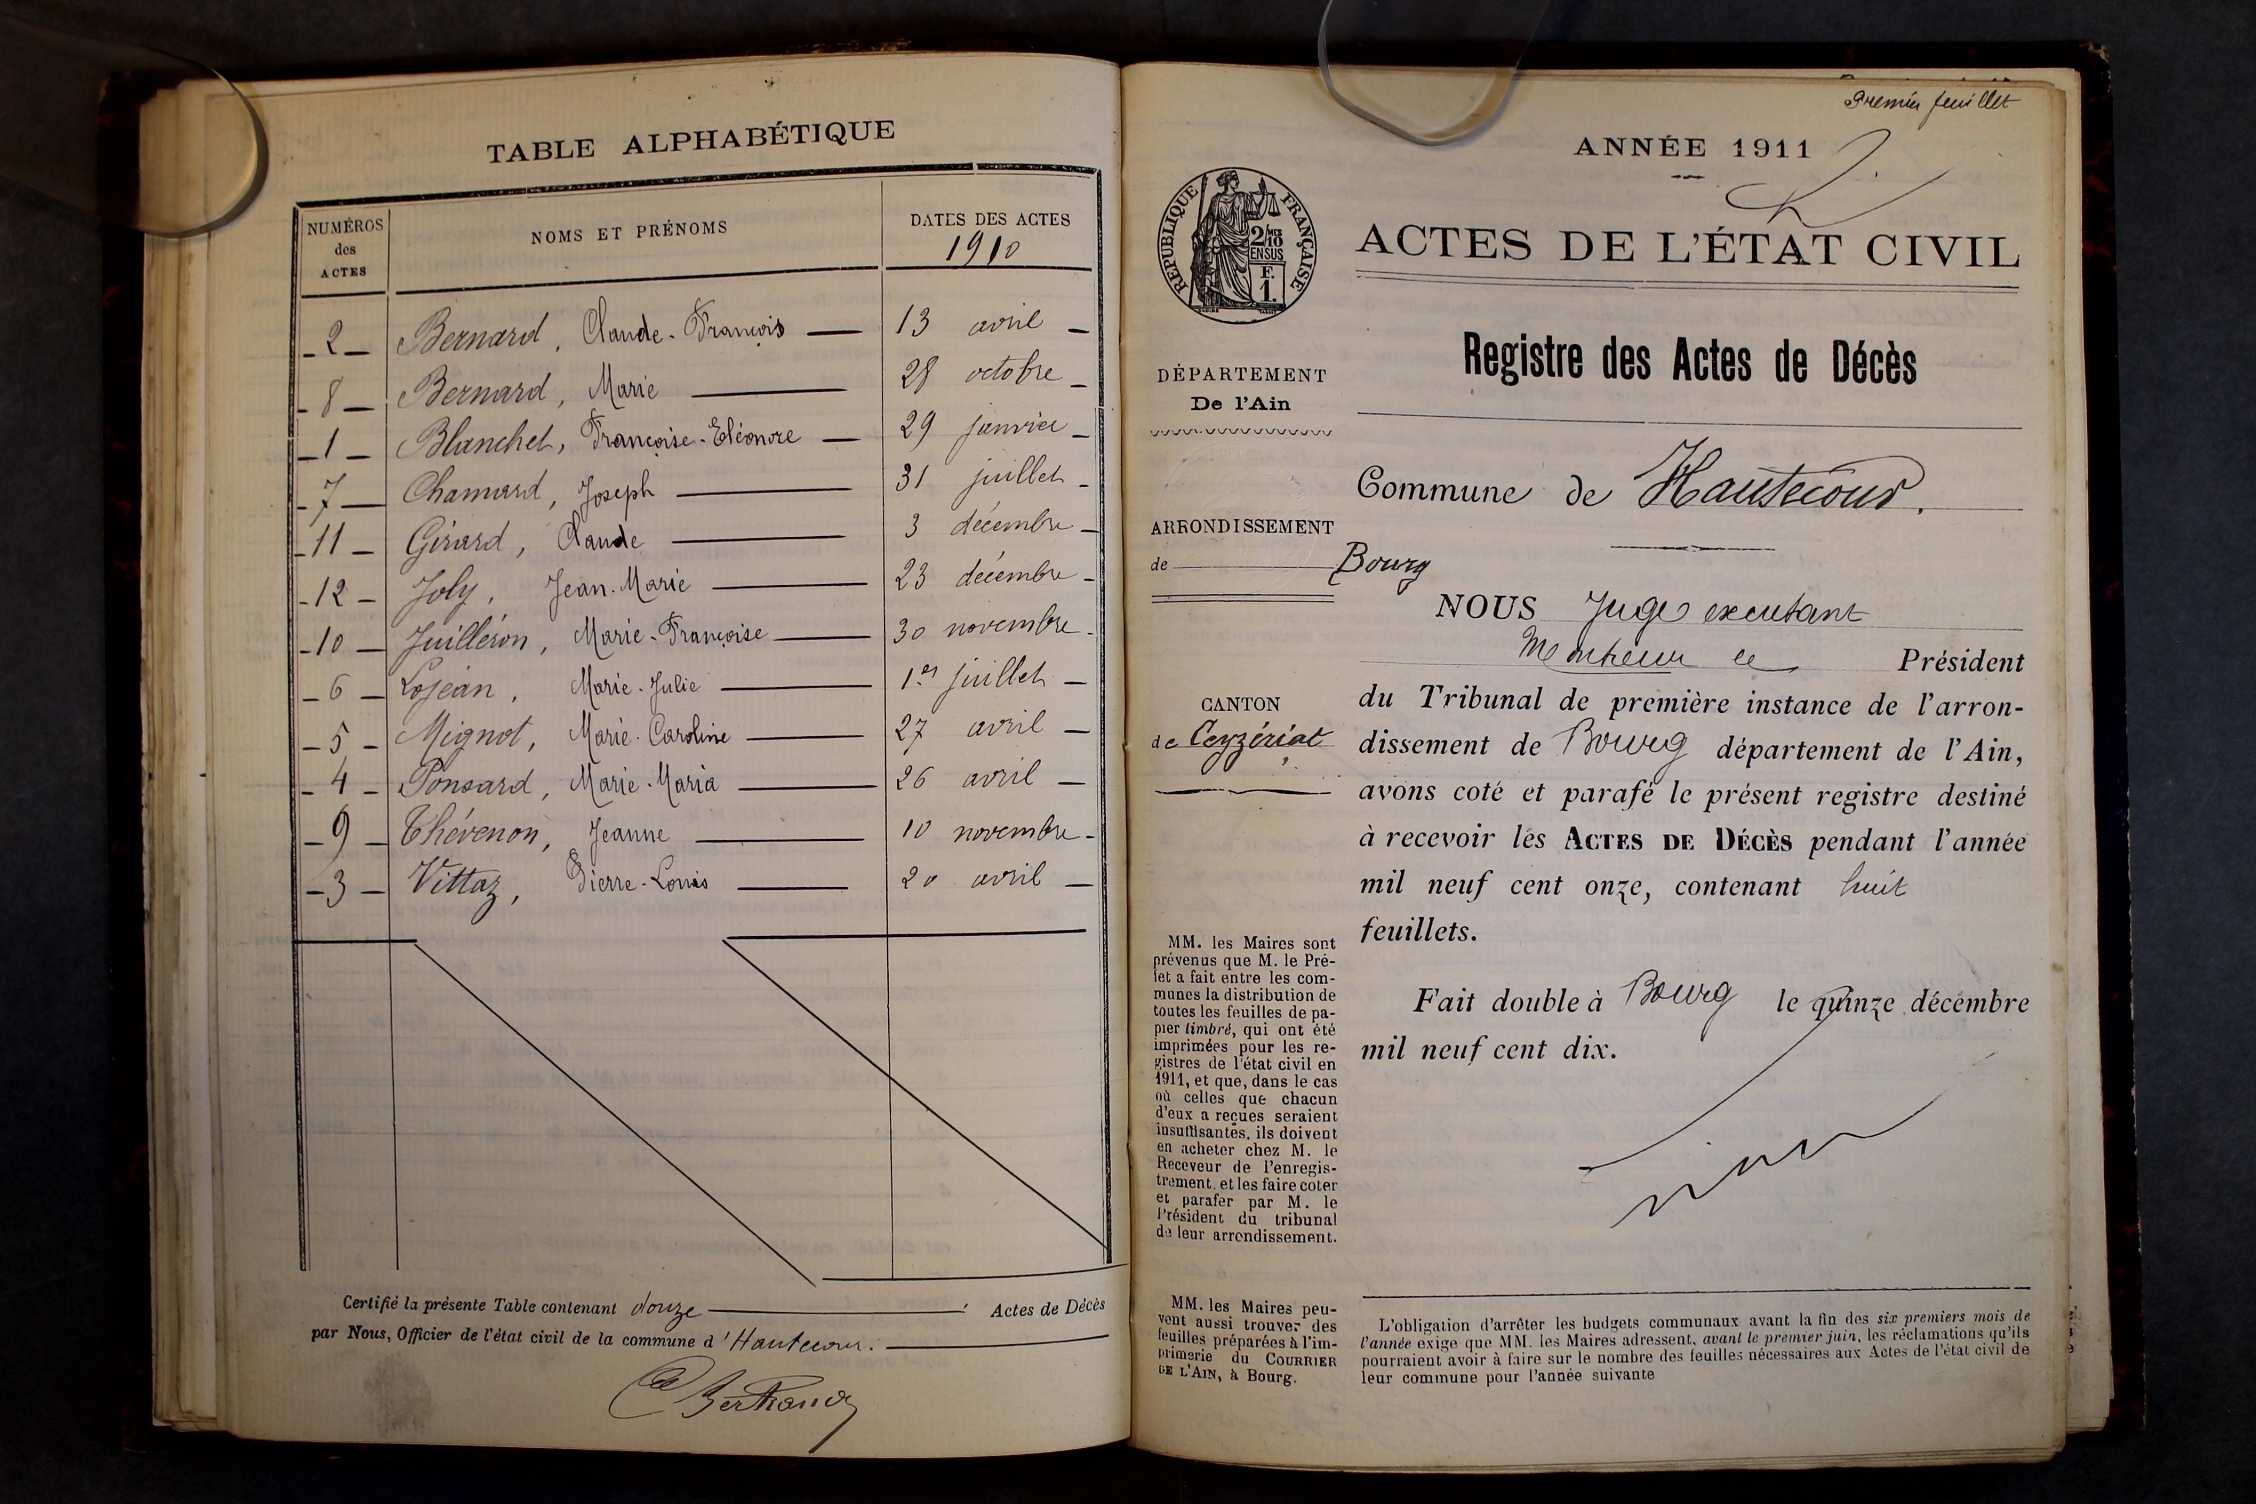 TABLE ALPHABÉTIQUE
NUMÉROS des ACTES
NOMS ET PRÉNOMS
DATES DES ACTES
1910
2 Bernard, Claude-François 13 avril
8 Bernard, Marie 28 octobre
1 Blanchet, Françoise-Eléonore 29 janvier
7 Chanard, Joseph 31 juillet
11 Girard, Claude 3 décembre
12 Joly, Jean-Marie 23 décembre
10 Juilléron, Marie-Françoise 30 novembre
6 Lojean, Marie-Julie 1er juillet
5 Mignot, Marie-Caroline 27 avril
4 Ponsard, Marie-Maria 26 avril
9 Thévenon, Jeanne 10 novembre
3 Vittaz, Pierre-Louis 20 avril
Certifié la présente Table contenant douze Actes de Décès
par Nous, Officier de l'état civil de la commune d'Hautecour.
Premier feuillet
ANNÉE 1911
ACTES DE L'ÉTAT CIVIL
RÉPUBLIQUE FRANÇAISE
2/10 MES
EN SUS
F.
1.
Registre des Actes de Décès
DÉPARTEMENT
De l'Ain
Commune de Hautecour.
ARRONDISSEMENT
de Bourg
CANTON
de Ceyzériat
NOUS Juge
Monsieur le Président
du Tribunal de première instance de l'arron-
dissement de Bourg département de l'Ain,
avons coté et parafé le présent registre destiné
à recevoir les ACTES DE DÉCÈS pendant l'année
mil neuf cent onze, contenant huit
feuillets.
Fait double à Bourg le quinze décembre
mil neuf cent dix.
MM. les Maires sont
prévenus que M. le Pré-
fet a fait entre les com-
munes la distribution de
toutes les feuilles de pa-
pier timbré, qui ont été
imprimées pour les re-
gistres de l'état civil en
1911, et que, dans le cas
où celles que chacun
d'eux a reçues seraient
insuffisantes, ils doivent
en acheter chez M. le
Receveur de l'enregis-
trement, et les faire coter
et parafer par M. le
Président du tribunal
de leur arrondissement.
MM. les Maires peu-
vent aussi trouver des
feuilles préparées à l'im-
primerie du COURRIER
DE L'AIN, à Bourg.
L'obligation d'arrêter les budgets communaux avant la fin des six premiers mois de
l'année exige que MM. les Maires adressent, avant le premier juin, les réclamations qu'ils
pourraient avoir à faire sur le nombre des feuilles nécessaires aux Actes de l'état civil de
leur commune pour l'année suivante